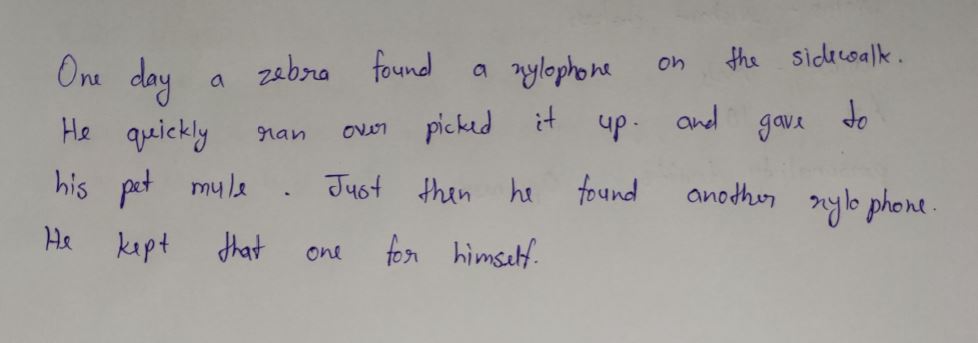 One day a zebra found a xylophone on the sidewalk.
He quickly ran over picked it up. and gave to
his pet mule. Just then he found another xylophone.
He kept that one for himself.